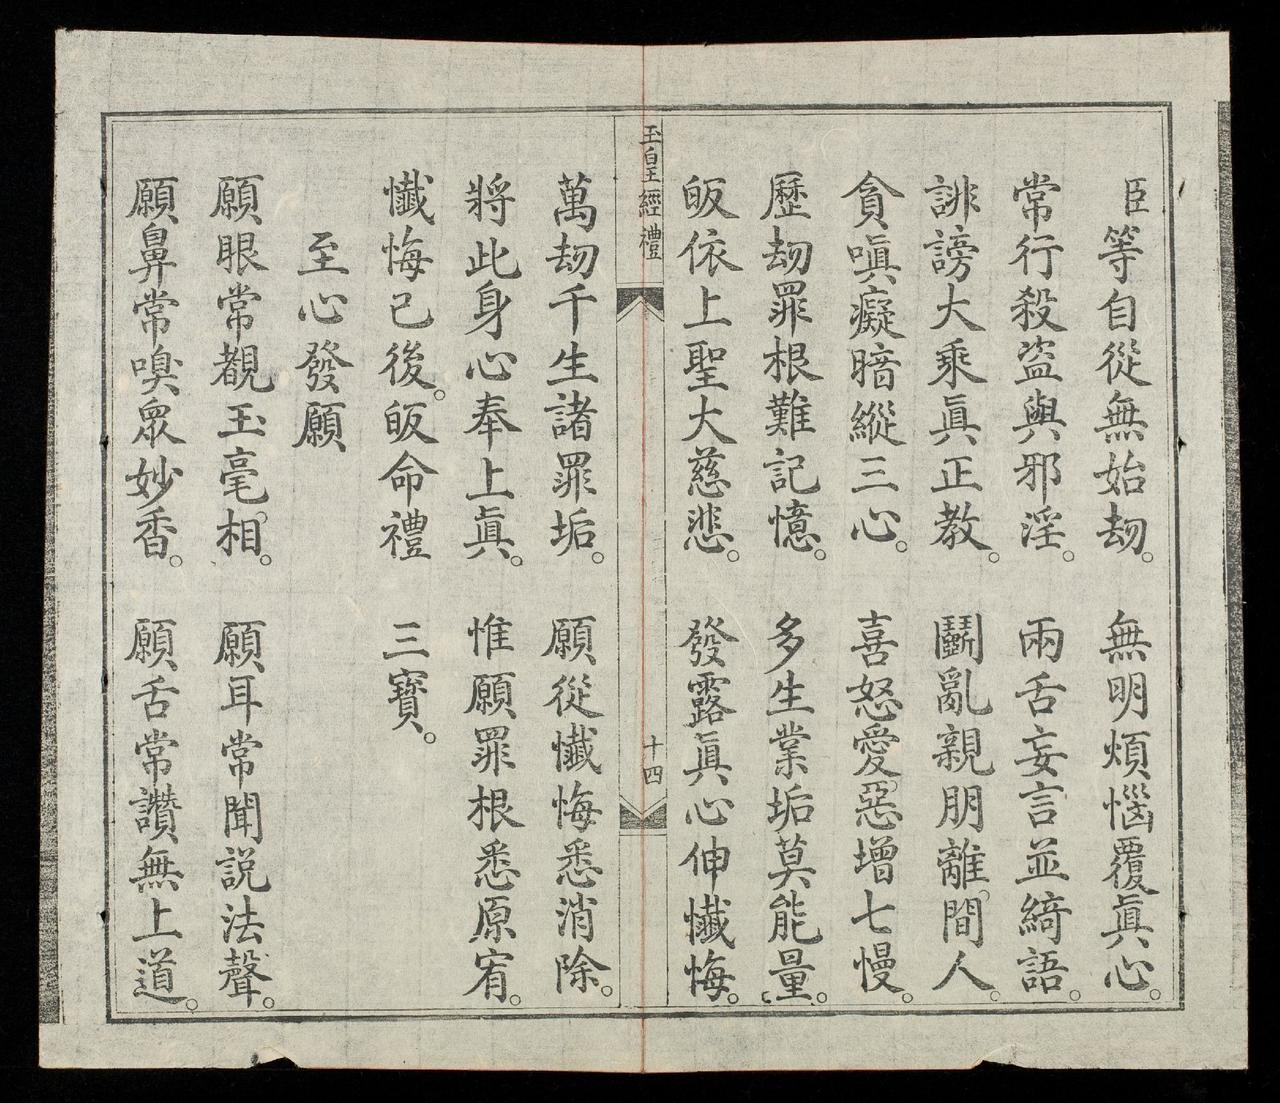 臣等自從無始劫。無明煩惱覆眞心。
常行殺盜與邪淫。兩舌妄言並綺語。
誹謗大乘眞正教。鬭亂親朋離間人。
貪嗔癡暗縱三心。喜怒愛惡增七慢。
歷劫罪根難記憶。多生業垢莫能量。
皈依上聖大慈悲。發露眞心伸懺悔。
玉皇經禮
十四
萬劫千生諸罪垢。願從懺悔悉消除。
將此身心奉上眞。惟願罪根悉原宥。
懺悔已後。皈命禮三寳。
至心發願
願眼常覩玉毫相。願耳常聞説法聲。
願鼻常嗅衆妙香。願舌常讚無上道。